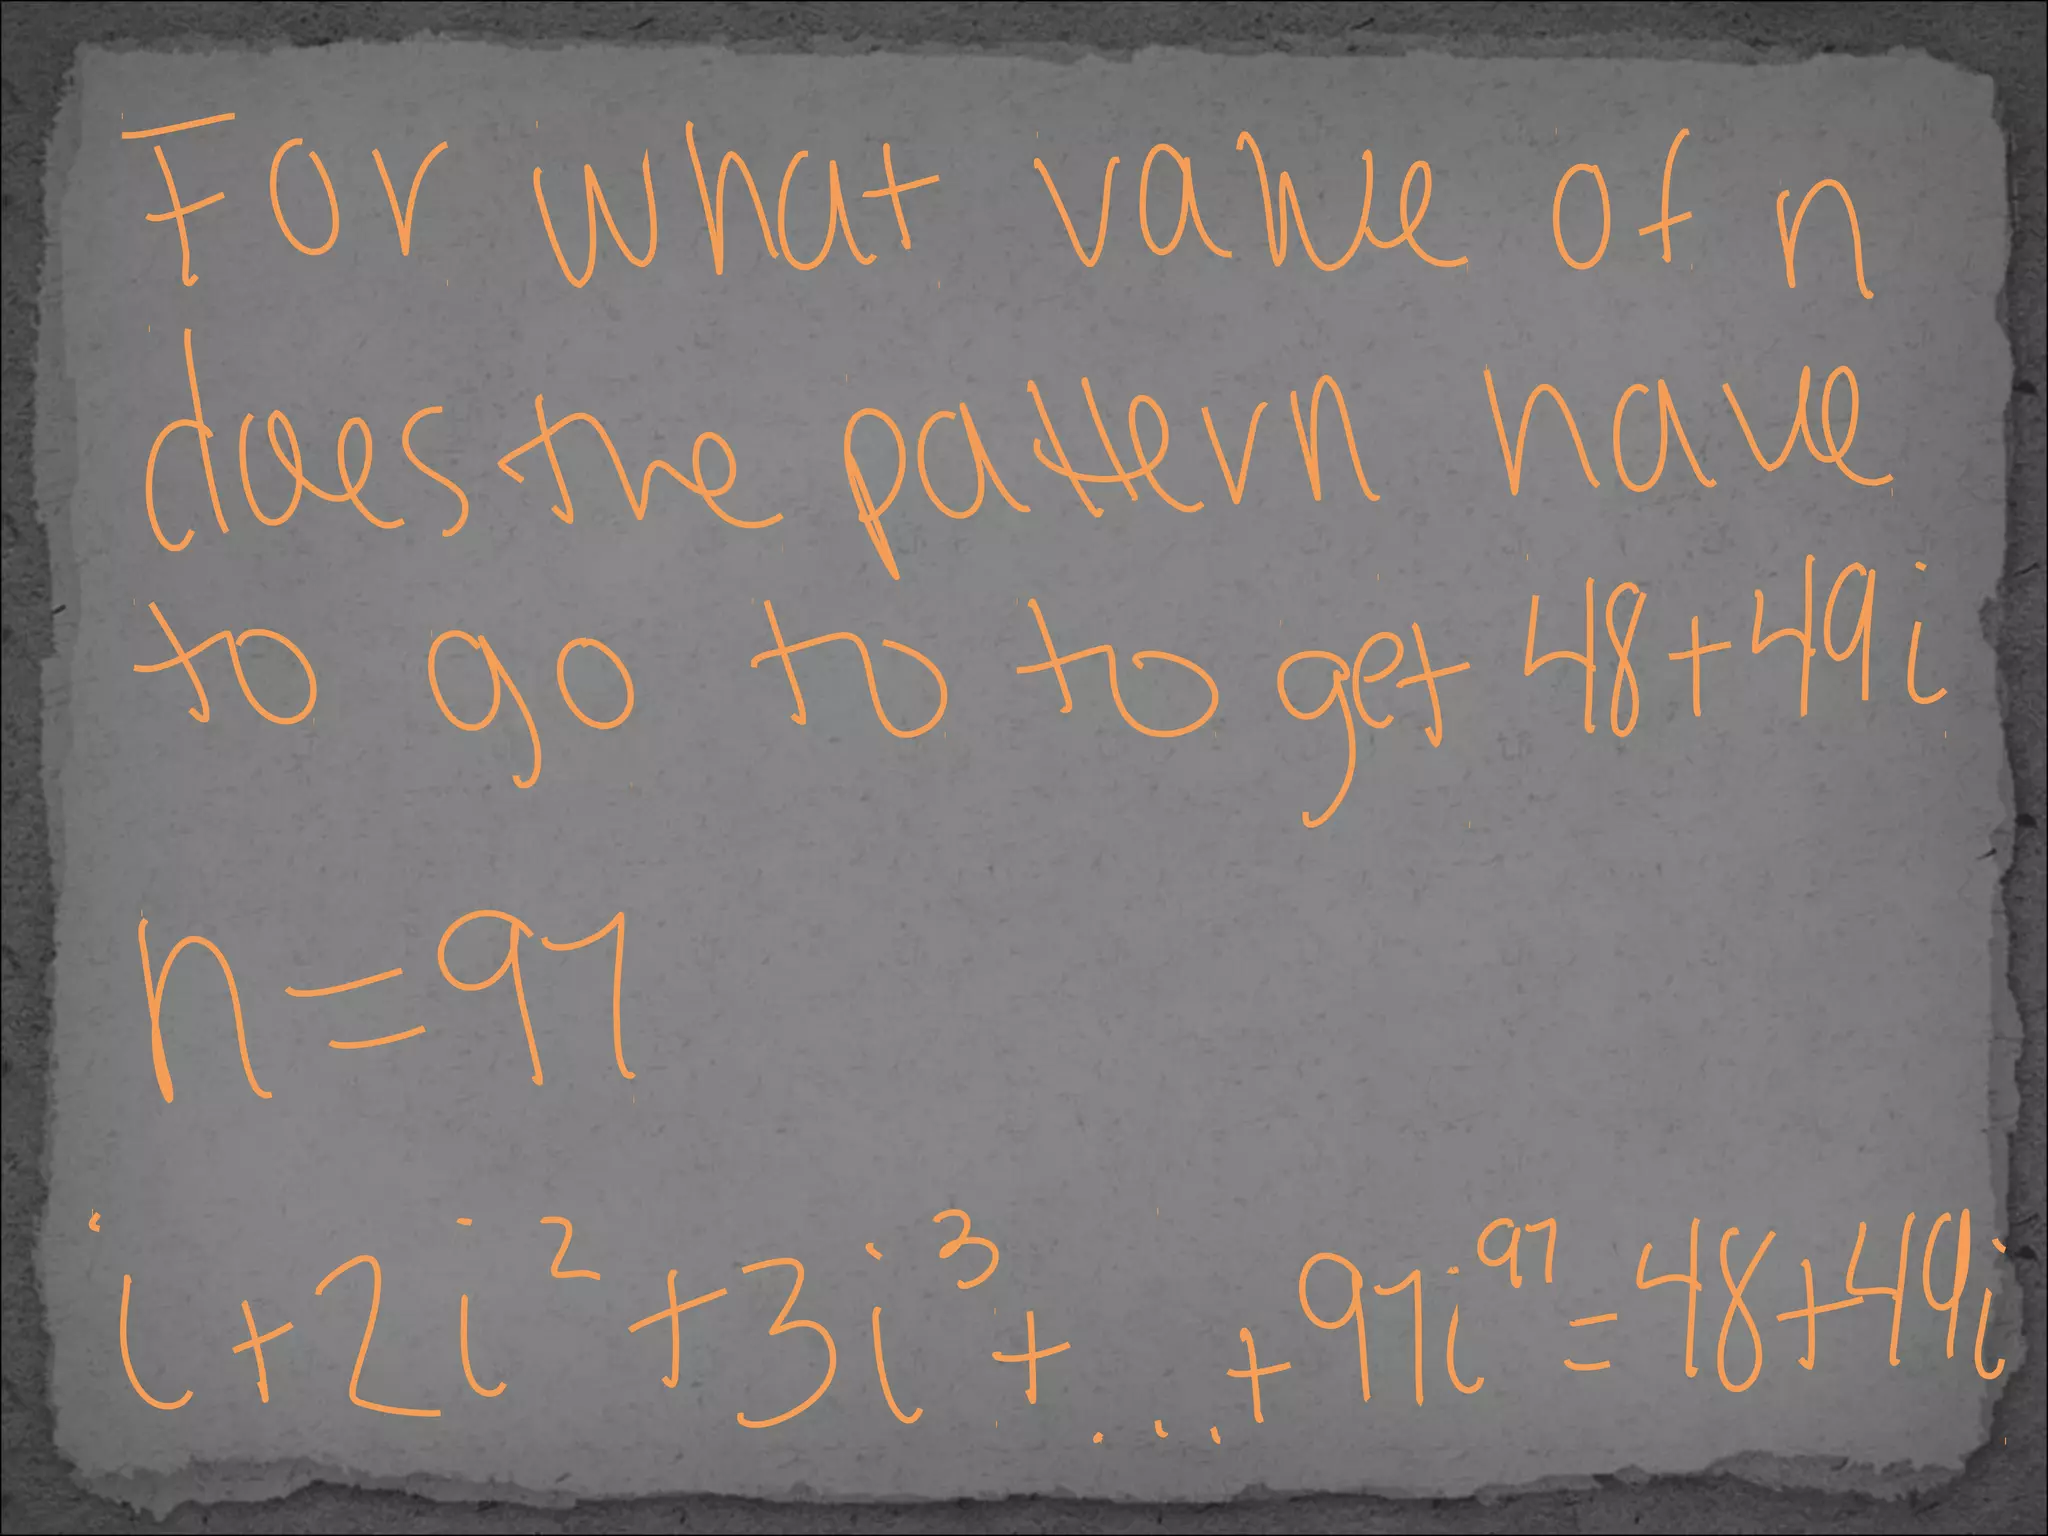 For what value of n
does the pattern have
to go to to get 48+49i
n=97
i+2i²+3i³+...+97i⁹⁷=48+49i